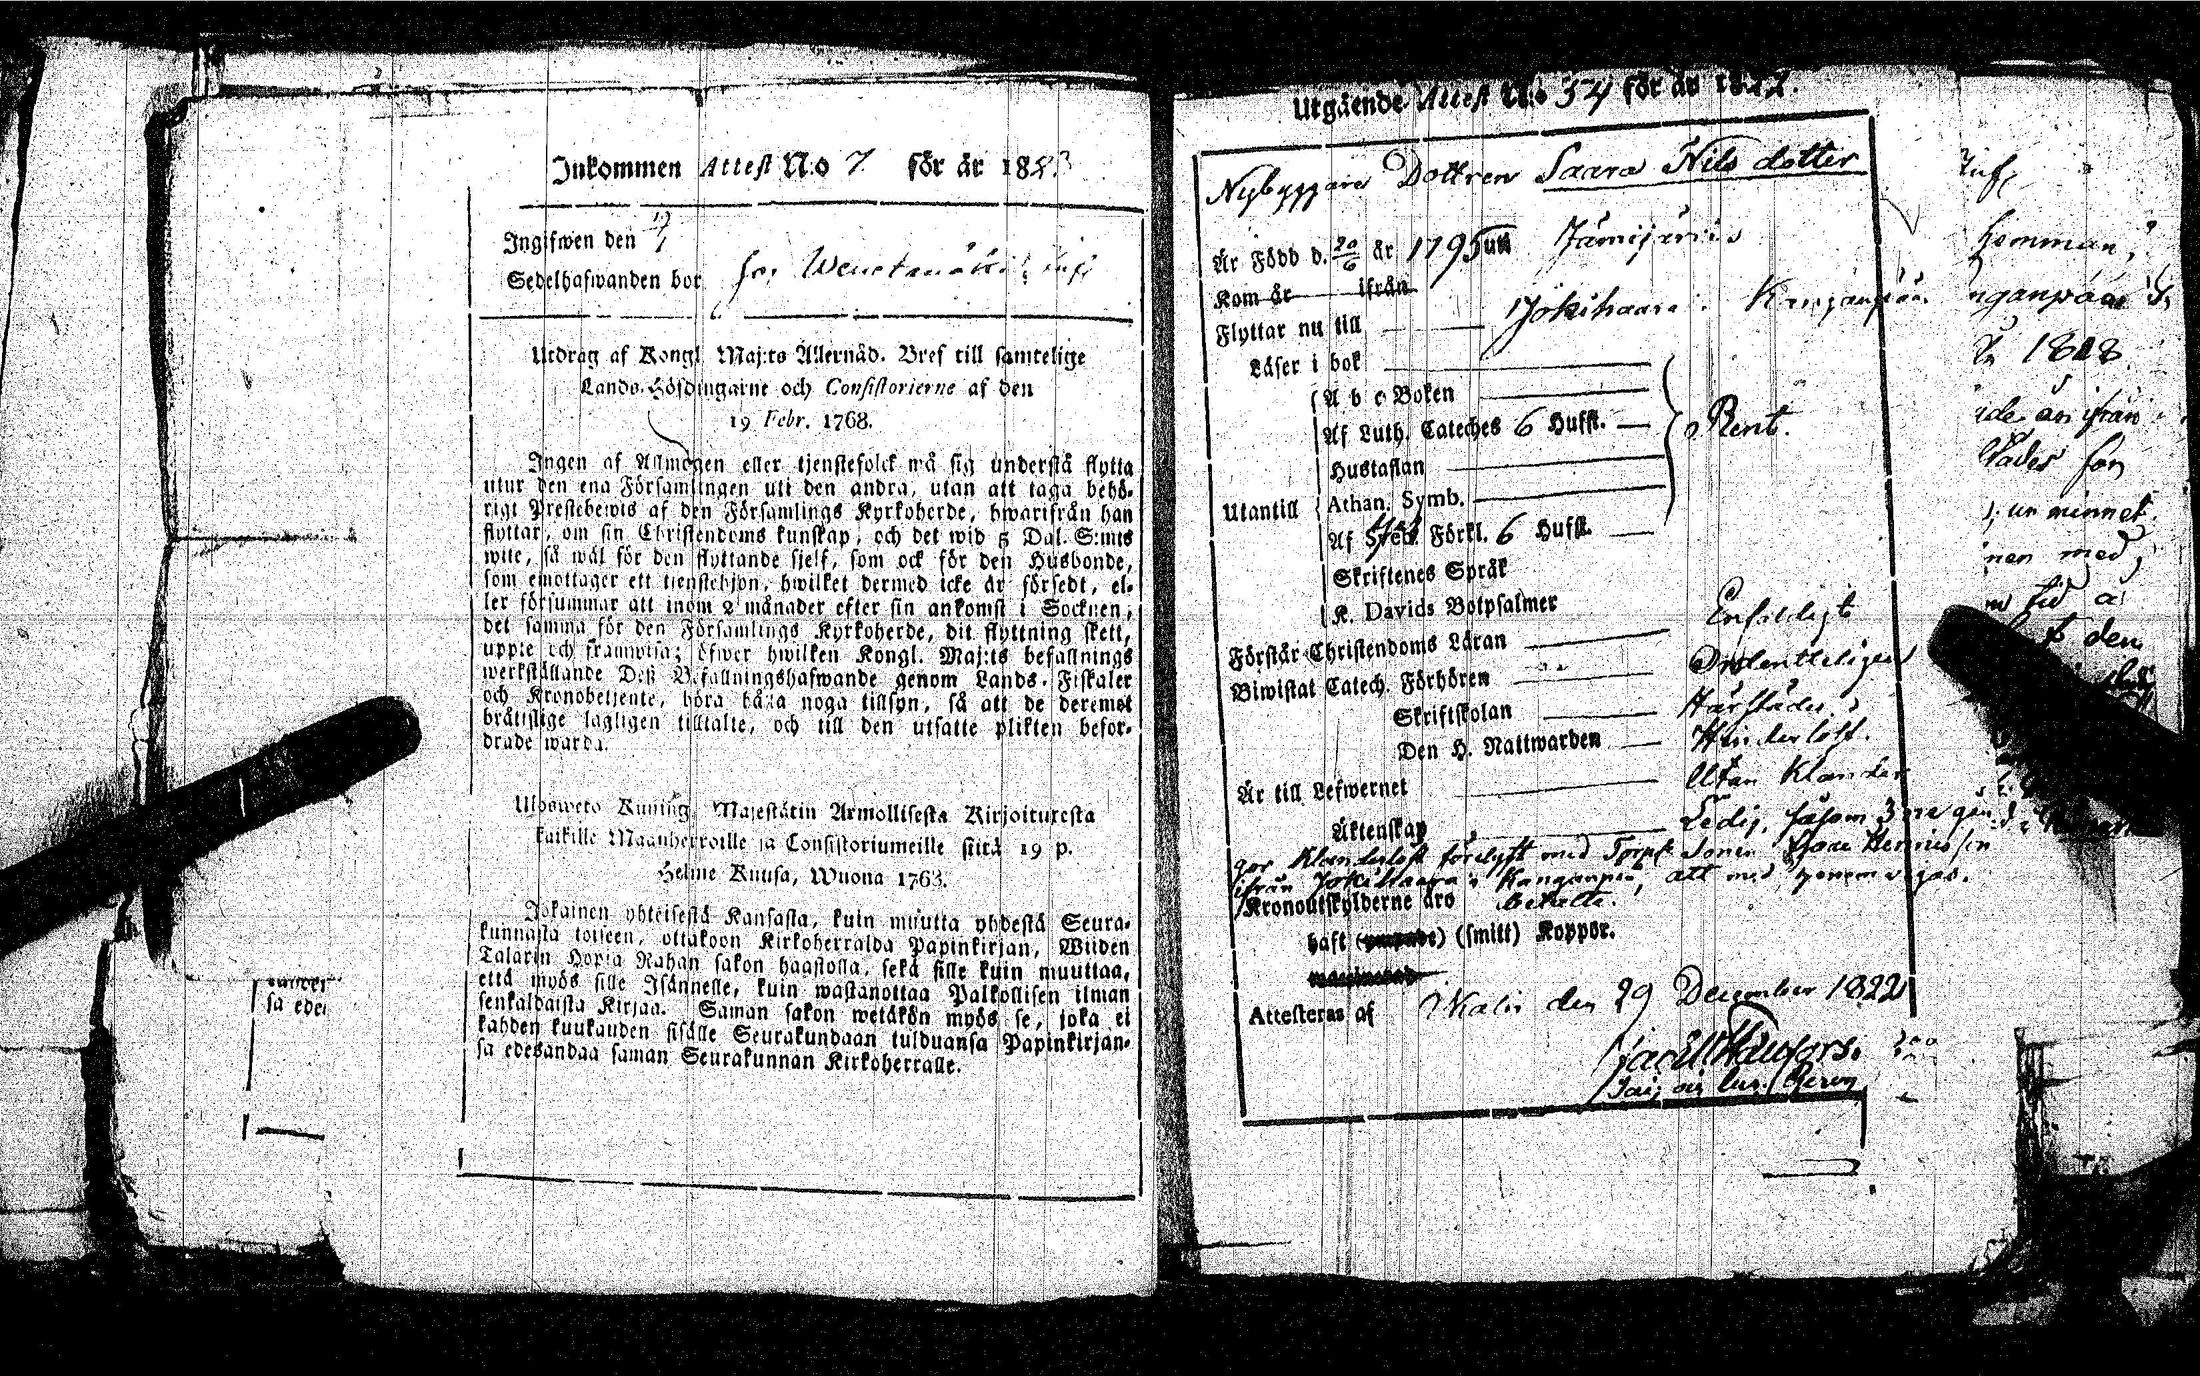 Inkommen Attest N:o 7 för år 1823
Ingifwen den
Sedelhafwanden bor
Utdrag af Kongl. Maj:ts Allernåd. Bref till samtelige
Lands-Höfdingarne och Consistorierne af den
19 Febr. 1768.
Ingen af Allmogen eller tjenstefolck må sig understå flytta
utur den ena Församlingen uti den andra, utan att taga behö-
rigt Prestebewis af den Församlings Kyrkoherde, hwarifrån han
flyttar, om sin Christendoms kunskap, och det wid 5 Dal. S:mts
wite, så wäl för den flyttande sjelf, som ock för den Husbonde,
som emottager ett tjenstehjon, hwilket dermed icke är försedt, el-
ler försummar att inom 2 månader efter sin ankomst i Socknen,
det samma för den Församlings Kyrkoherde, dit flyttning skett,
uppte och framwisa; öfwer hwilken Kongl. Maj:ts befallnings
werkställande Deß Befallningshafwande genom Lands-Fiskaler
och Kronobetjente, böra hålla noga tillsyn, så att de deremot
bråttslige lagligen tilltalte, och till den utsatte plikten befor-
drade warda.
Ulosweto Kuning. Majestätin Armollisesta Kirjoituresta
kaikille Maanherroille ja Consistoriumeille siitä 19 p.
Helme Kuusa, Wuona 1763.
Jokainen yhteisestä Kansasta, kuin muutta yhdestä Seura-
kunnasta toiseen, ottakoon Kirkoherralda Papinkirjan, Wiiden
Talarin Hopia Rahan sakon haastolla, sekä sille kuin muuttaa,
että myös sille Isännelle, kuin wastanottaa Palkollisen ilman
senkaldaista Kirjaa. Saman sakon wetäkön myös se, joka ei
kahden kuukauden sisälle Seurakundaan tulduansa Papinkirjan-
sa edesandaa saman Seurakunnan Kirkoherralle.
sa edes
Utgående Attest N:o 34 för år 1822.
Nybyggare Dottren Saara Nils dotter
Är Född d. 20/6 år 1795 uti Jämijärvi
Kom år ifrån
Flyttar nu till Jokihaara Kanganpää
Läser i bok
A b c Boken
Af Luth. Cateches 6 Hufst. Rent.
Hustaflan
Utantill Athan. Symb.
Af Sveb. Förkl. 6 Hufst.
Skriftenes Språk
K. Davids Botpsalmer
Förstår Christendoms Läran Enfaldigt
Biwistat Catech. Förhören Ordentteligen
Skriftskolan Härstädes
Den H. Nattwarden Hinderlöst.
Är till Lefwernet Utan Klander
Äktenskap Ledig, såsom 3ne gån
gor Klanderlöst förelyst med Torp Sonen
ifrån Jokihaara i Kanganpää, att med
Kronoutskylderne äro betalte.
haft (smitt) Koppor.
Attesteras af den 29 December 1822
Hemman
nganpää
1818
ide än ifrån
den